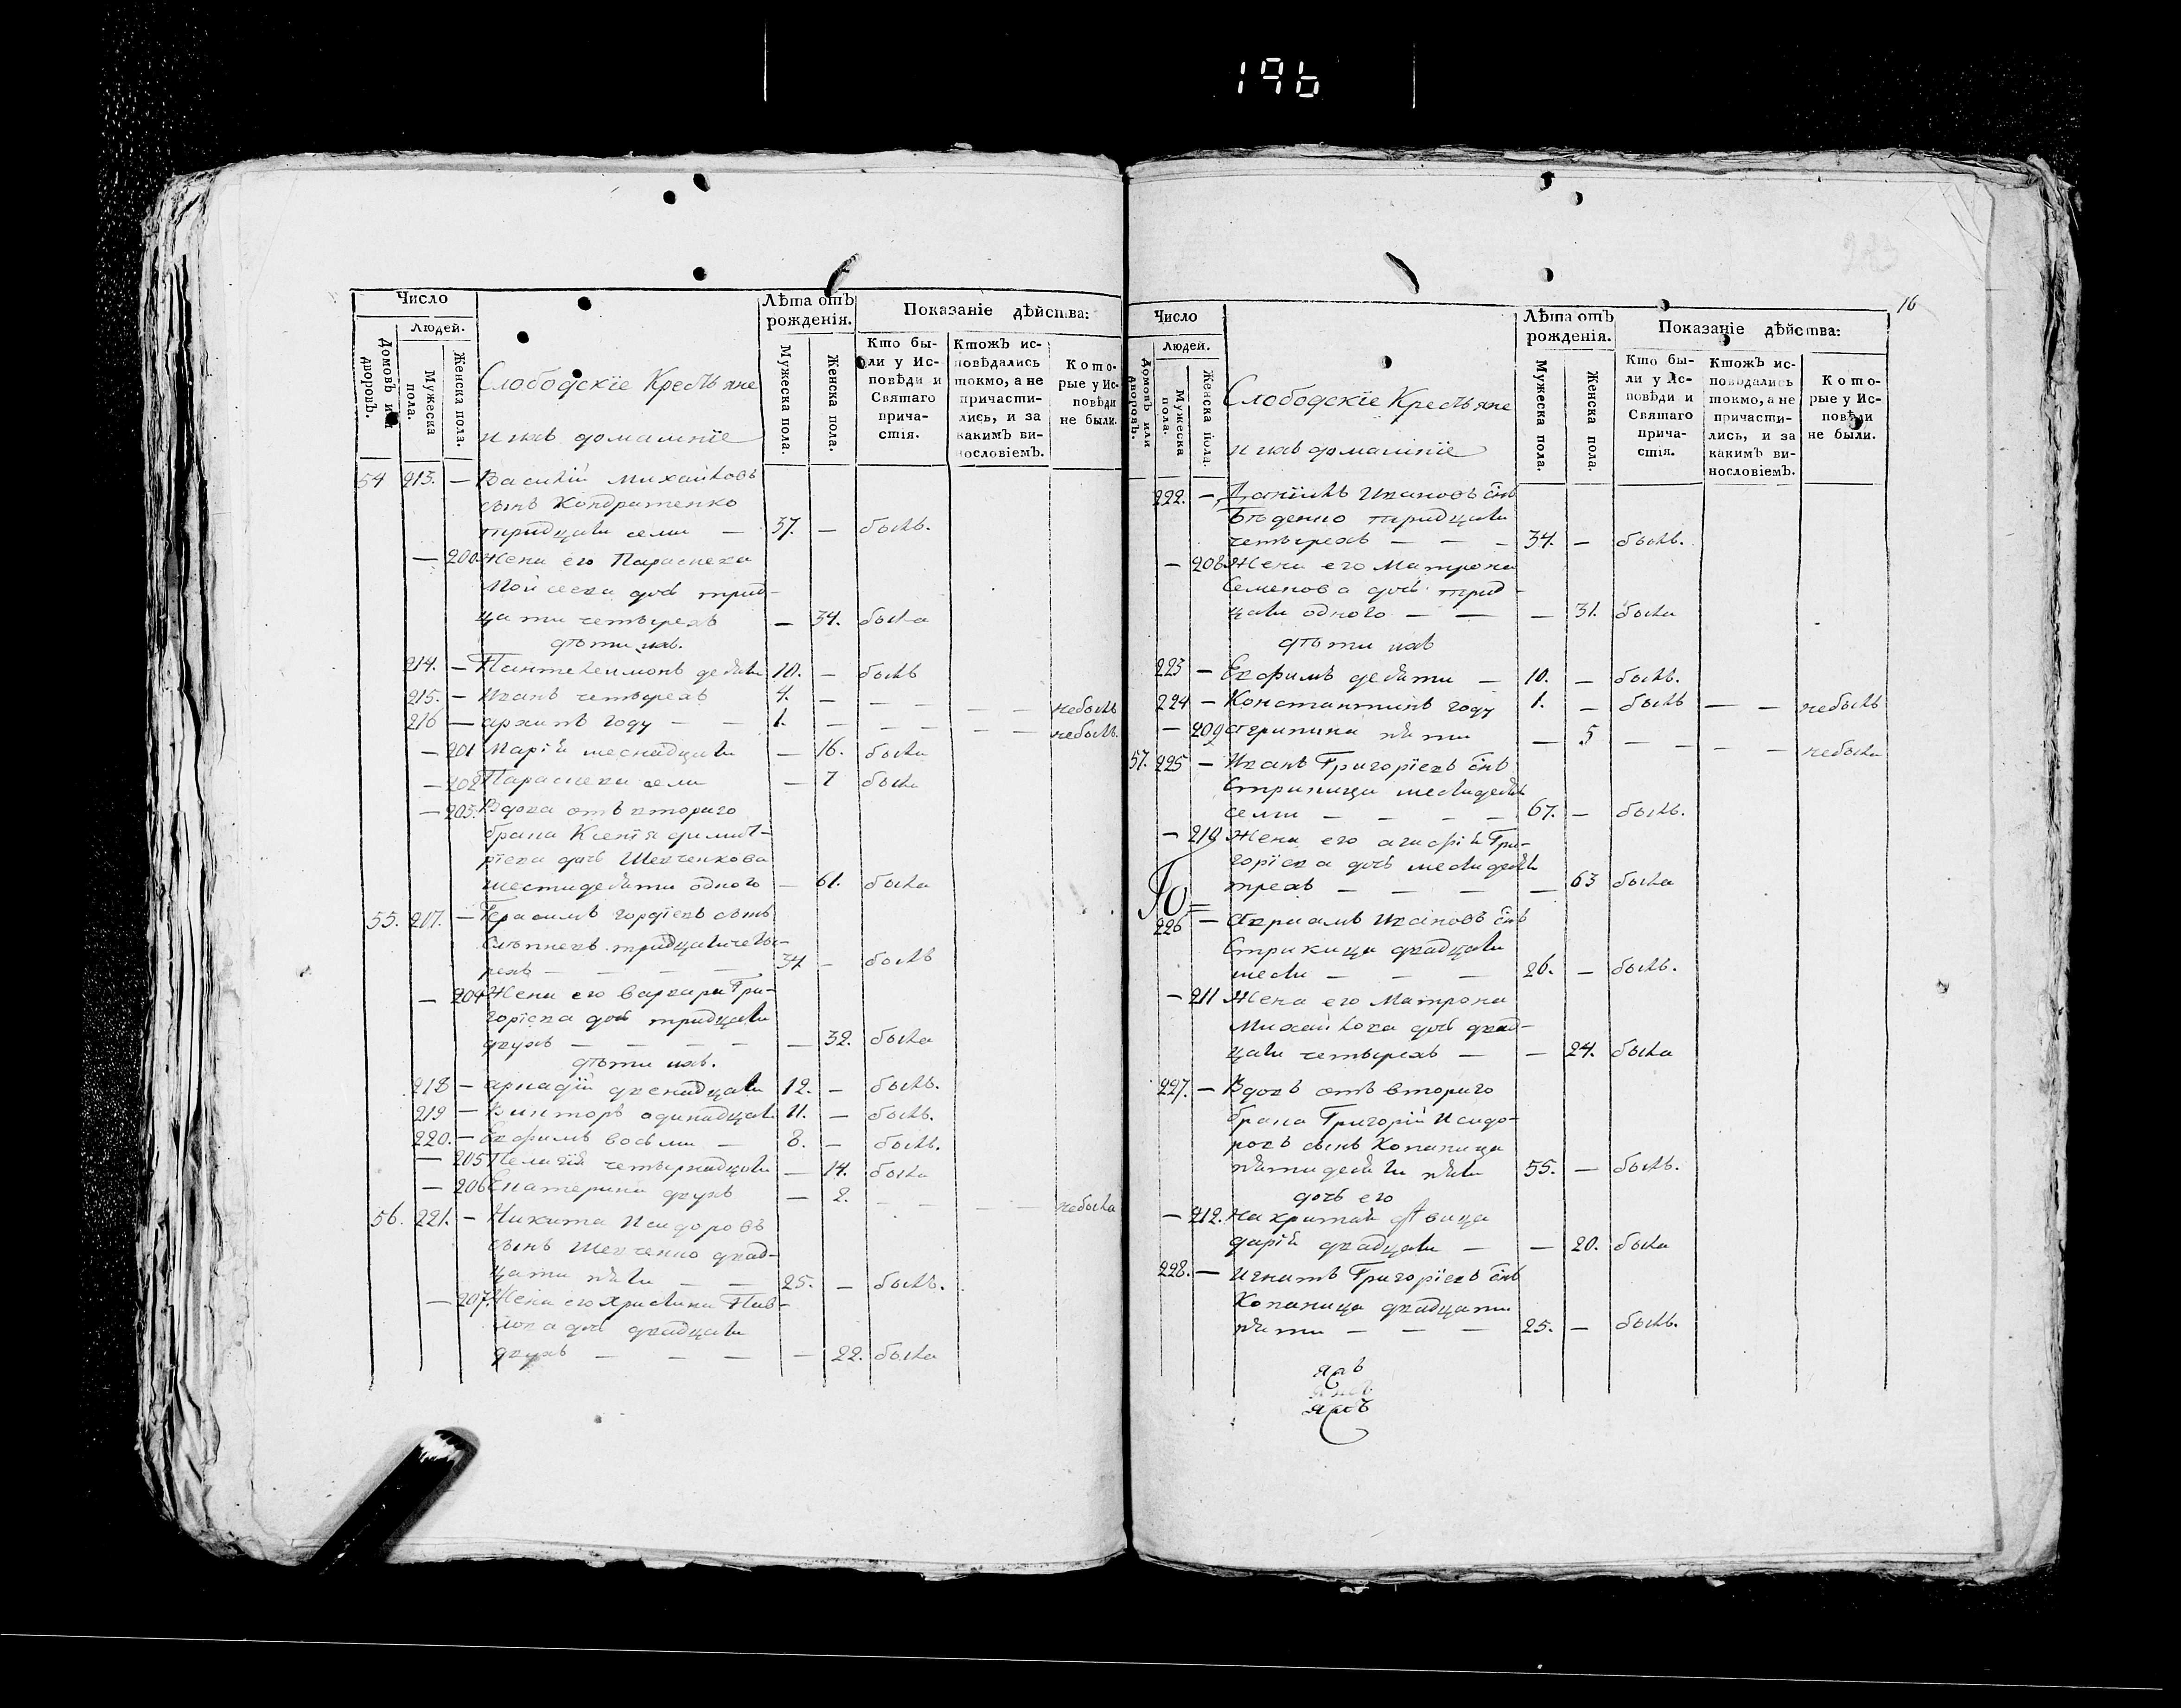 196
Число
Людей.
Домовъ или дворовъ.
Мужеска пола.
Женска пола.
Слободскїе Крестьяне
и ихъ домашнїе
Лѣта отъ рожденія.
Мужеска пола.
Женска пола.
Показаніе дѣйства:
Кто бы-
ли у Ис-
повѣди и
Святаго
прича-
стія.
Ктожъ ис-
повѣдались
токмо, а не
причасти-
лись, и за
какимъ ви-
нословіемъ.
Кото-
рые у Ис-
повѣди
не были.
54 213. — Василій Михайловъ
сынъ Кондратенко
тридцати семи — 37. — былъ.
— 200. Жена его Параскева
Мойсеева дочь трид-
цати четырехъ — 34. была
дѣти ихъ.
214. — Пантелеимонъ десяти 10. — былъ
215. — Иванъ четырехъ 4. — — — — — небылъ
216 — архипъ году — — 1. — — — — — небылъ.
— 201 Марія шеснадцати — 16. была
— 202 Параскева семи — 7 была
— 203. Вдова отъ втораго
брака Ксенїя димит-
рїева дочь Шевченкова
шестидесяти одного — 61. была
55. 217. — Герасимъ гордїевъ сынъ
тридцати четы-
рехъ — — — — 34 — былъ
— 204 Жена его варвара Гри-
горїева дочь тридцати
двухъ — — — — — 32. была
дѣти ихъ.
218 — аркадїй двенадцати 12. — былъ.
219 — Викторъ одинадцати 11. — былъ.
220. — Евфимъ восьми — 8. — былъ.
— 205 Пелагїя четырнадцати — 14. была
— 206 Екатерина двухъ — 2. — — — — небыла
56. 221. — Никита Исидоровъ
сынъ Шевченко двад-
цати пяти — — 25. — былъ.
— 207. Жена его Христина Пав-
лова дочь двадцати
двухъ — — — — 22. была
16
Число
Людей.
Домовъ или дворовъ.
Мужеска пола.
Женска пола.
Слободскїе Крестьяне
и ихъ домашнїе
Лѣта отъ рожденія.
Мужеска пола.
Женска пола.
Показаніе дѣйства:
Кто бы-
ли у Ис-
повѣди и
Святаго
прича-
стія.
Ктожъ ис-
повѣдались
токмо, а не
причасти-
лись, и за
какимъ ви-
нословіемъ.
Кото-
рые у Ис-
повѣди
не были.
222. — Данїилъ Ивановъ снъ
тридцати
четырехъ — — — 34. — былъ.
— 208 Жена его Матрона
Семенова дочь трид-
цати одного — — — 31. была
дѣти ихъ
223 — Евфимъ десяти — 10. — былъ.
224 — Константинъ году 1. — былъ — — небылъ
— 209 агрипина пяти — 5 — — — — небыла
57. 225 — Иванъ Григорїевъ снъ
шестидесяти
семи — — — — 67. — былъ.
— 210 Жена его агафїя Гри-
горїева дочь шестидесяти
трехъ — — — — — 63 была
226 — Аврамъ Ивановъ снъ
двадцати
шести — — — 26. — былъ.
— 211 Жена его Матрона
Михайлова дочь двад-
цати четырехъ — — 24. была
227. — Вдовъ отъ втораго
брака Григорїй Исидо-
ровъ сынъ Копаница
пятидесяти пяти 55. — былъ.
дочь его
— 212.
дарїя двадцати — — 20. была
228. — Игнатъ Григорїевъ снъ
Копаница двадцати
пяти — — — 25. — былъ.